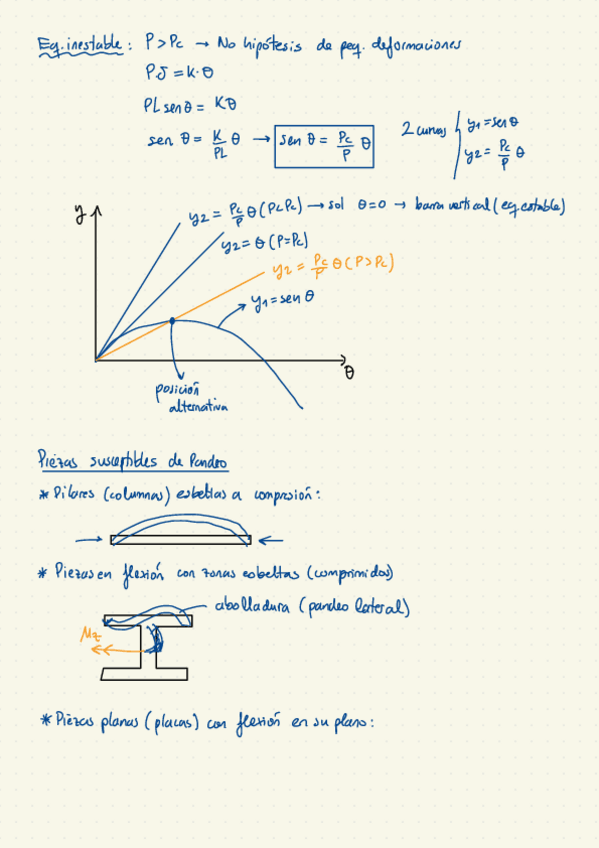 Eq. inestable: P > Pc → No hipótesis de peq. deformaciones
P·δ = K·θ
PL sen θ = Kθ
sen θ = K/PL θ → sen θ = Pc/P θ
2 curvas { y1 = sen θ
y2 = Pc/P θ
y
y2 = Pc/P θ (P<Pc) → sol θ=0 → barra vertical (eq. estable)
y2 = θ (P=Pc)
y2 = Pc/P θ (P>Pc)
y1 = sen θ
θ
posición
alternativa
Piezas susceptibles de Pandeo
* Pilares (columnas) esbeltas a compresión:
* Piezas en flexión con zonas esbeltas (comprimidas)
abolladura (pandeo lateral)
Mz
* Piezas planas (placas) con flexión en su plano: